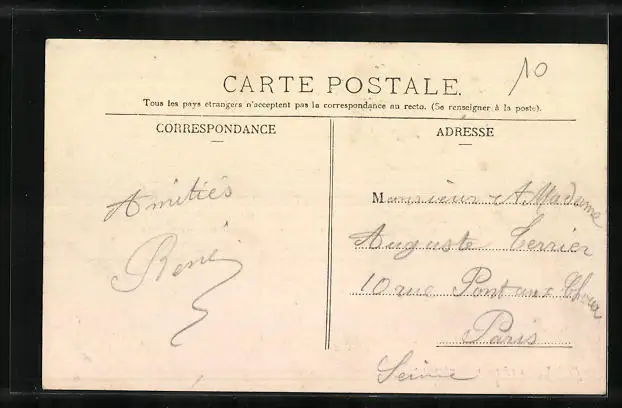 10
CARTE POSTALE.
Tous les pays étrangers n'acceptent pas la correspondance au recto. (Se renseigner à la poste).
CORRESPONDANCE
ADRESSE
Amitiés
René
Monsieur & Madame
Auguste Terrier
10 rue Pont aux Choux
Paris
Seine